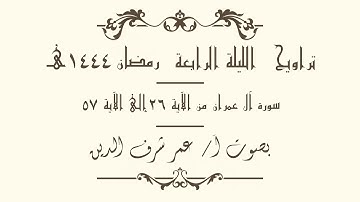 تراويح الليلة الرابعة رمضان ١٤٤٤هـ
سورة آل عمران من الآية ٢٦ إلى الآية ٥٧
بصوت أ/ عمر شرف الدين